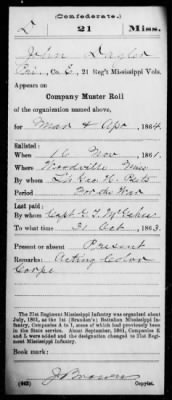 (Confederate.)
21 Miss.
John
Pri, Co. E, 21 Reg't Mississippi Vols.
Appears on
Company Muster Roll
of the organization named above,
for Mar & Apr, 1864.
Enlisted:
When 16 Nov, 1861.
Where Woodville Miss
By whom Lt Geo. H.
Period For the War
Last paid:
By whom Capt G. T. McGehee
To what time 31 Oct, 1863.
Present or absent Present
Remarks: Acting Color
Corpl
The 21st Regiment Mississippi Infantry was organized about
July, 1861, as the 1st (Brandon's) Battalion Mississippi Inf-
antry, Companies A to I, some of which had previously been
in the State service. About September, 1861, Companies K and
L were added and the designation changed to 21st Regi-
ment Mississippi Infantry.
Book mark:
(642)
Copyist.